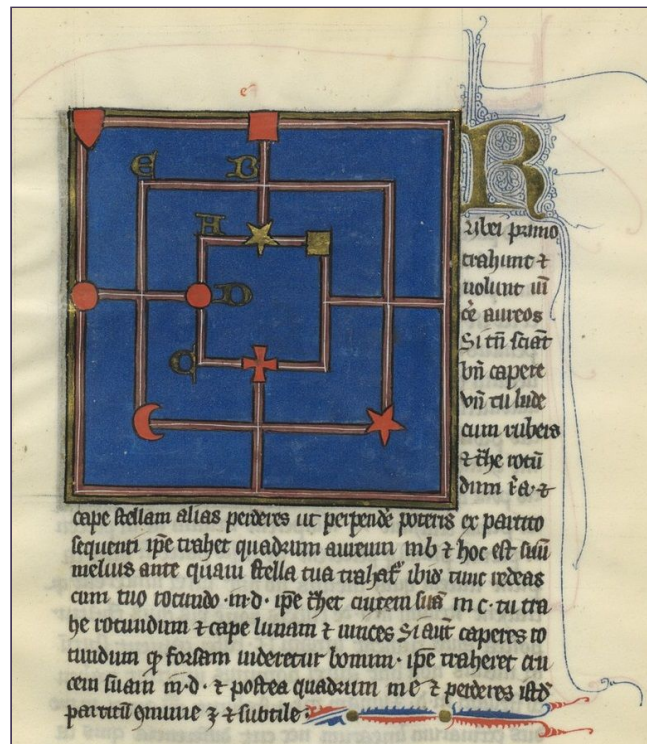 e
E B
A
D
C
Rubei primo
trahunt &
uolunt uī
c̄e aureos
Si tn̄ sciāt
bn̄ capere
vn̄ tu lude
cum rubeis
& t̄he rotū
dum ī a &
cape stellam alias perderes ut perpend̄e poteris ex partito
sequenti ip̄e trahet quadrum aureum in b & hoc est suū
melius ante quam stella tua trahat᷑ ibi tunc redeas
cum tuo rotundo .in .d. ip̄e t̄het crucem suā in c. tu tra
he rotundum & cape lunam & uinces Si aūt caperes ro
tundum forsam uideretur bonum. ip̄e traheret cru
cem suam in .d. & postea quadrum in e & perderes istđ
partitū ꝯmune ꝫ & subtile.